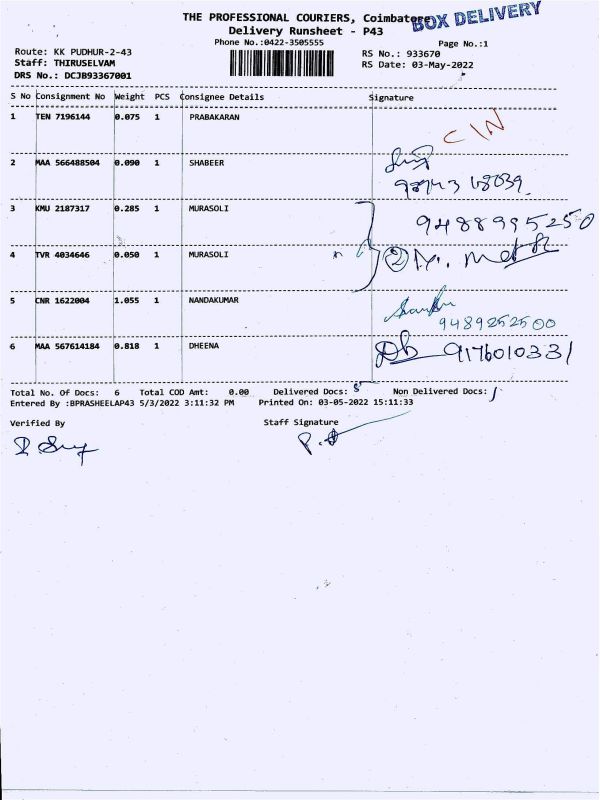 THE PROFESSIONAL COURIERS, Coimbatore
BOX DELIVERY
Delivery Runsheet - P43
Phone No.:0422-3505555
Page No.:1
Route: KK PUDHUR-2-43
RS No.: 933670
Staff: THIRUSELVAM
RS Date: 03-May-2022
DRS No.: DCJB93367001
S No Consignment No Weight PCS Consignee Details Signature
1 TEN 7196144 0.075 1 PRABAKARAN
CIN
2 MAA 566488504 0.090 1 SHABEER
3 KMU 2187317 0.285 1 MURASOLI
9488995250
4 TVR 4034646 0.050 1 MURASOLI
2
5 CNR 1622004 1.055 1 NANDAKUMAR
9489252500
6 MAA 567614184 0.818 1 DHEENA
9176010331
Total No. Of Docs: 6 Total COD Amt: 0.00 Delivered Docs: 5 Non Delivered Docs: 1
Entered By :BPRASHEELAP43 5/3/2022 3:11:32 PM Printed On: 03-05-2022 15:11:33
Verified By Staff Signature